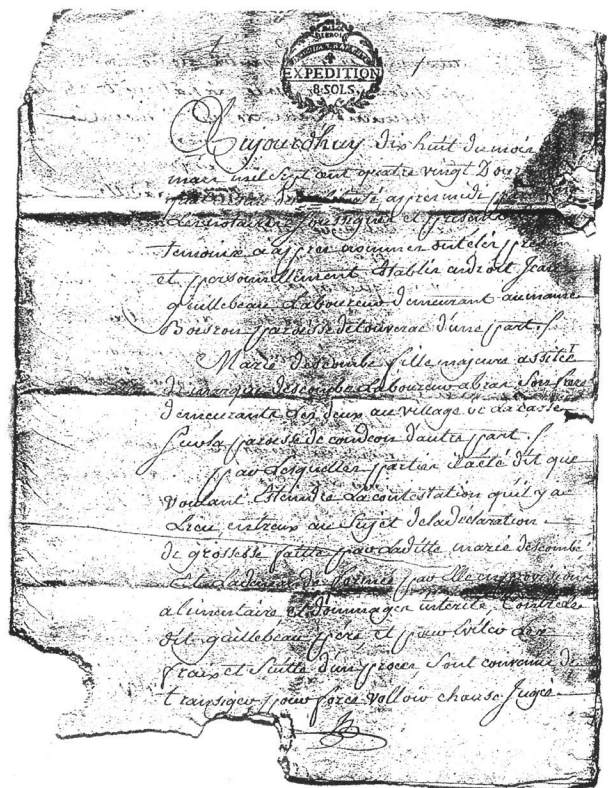 4
EXPEDITION
8. SOLS.
Aujourdhuy dix huit du mois
mars mil sept cent quatre vingt Dou
de la liberté appres midi
Les notaires soussignés et presance
temoins appres nommes ont eté pres
et personnellement Etablis en droit Jean
guillebeau Laboureur demeurant au maine
Boisron paroisse de touverac d'une part. /.
Marie descombe fille majeure assitée
de descombe Laboureur a bras Son frere
demeurants Les deux au village
paroisse de condeon d'autre part. /
par Lesquelles parties il a été dit que
voulant Eteindre La contestation quil y a
Lieu entreux au Sujet de la declaration
de grossesse faitte par Laditte marie descombe
Et La demande formée par Elle en provision
alimentaire et dommages interêts, Contre le
dit guillebeau pere et pour Eviter Les
fraix et Suitte d'un procès, Sont convenus de
transiger pour force valloir chause Jugée